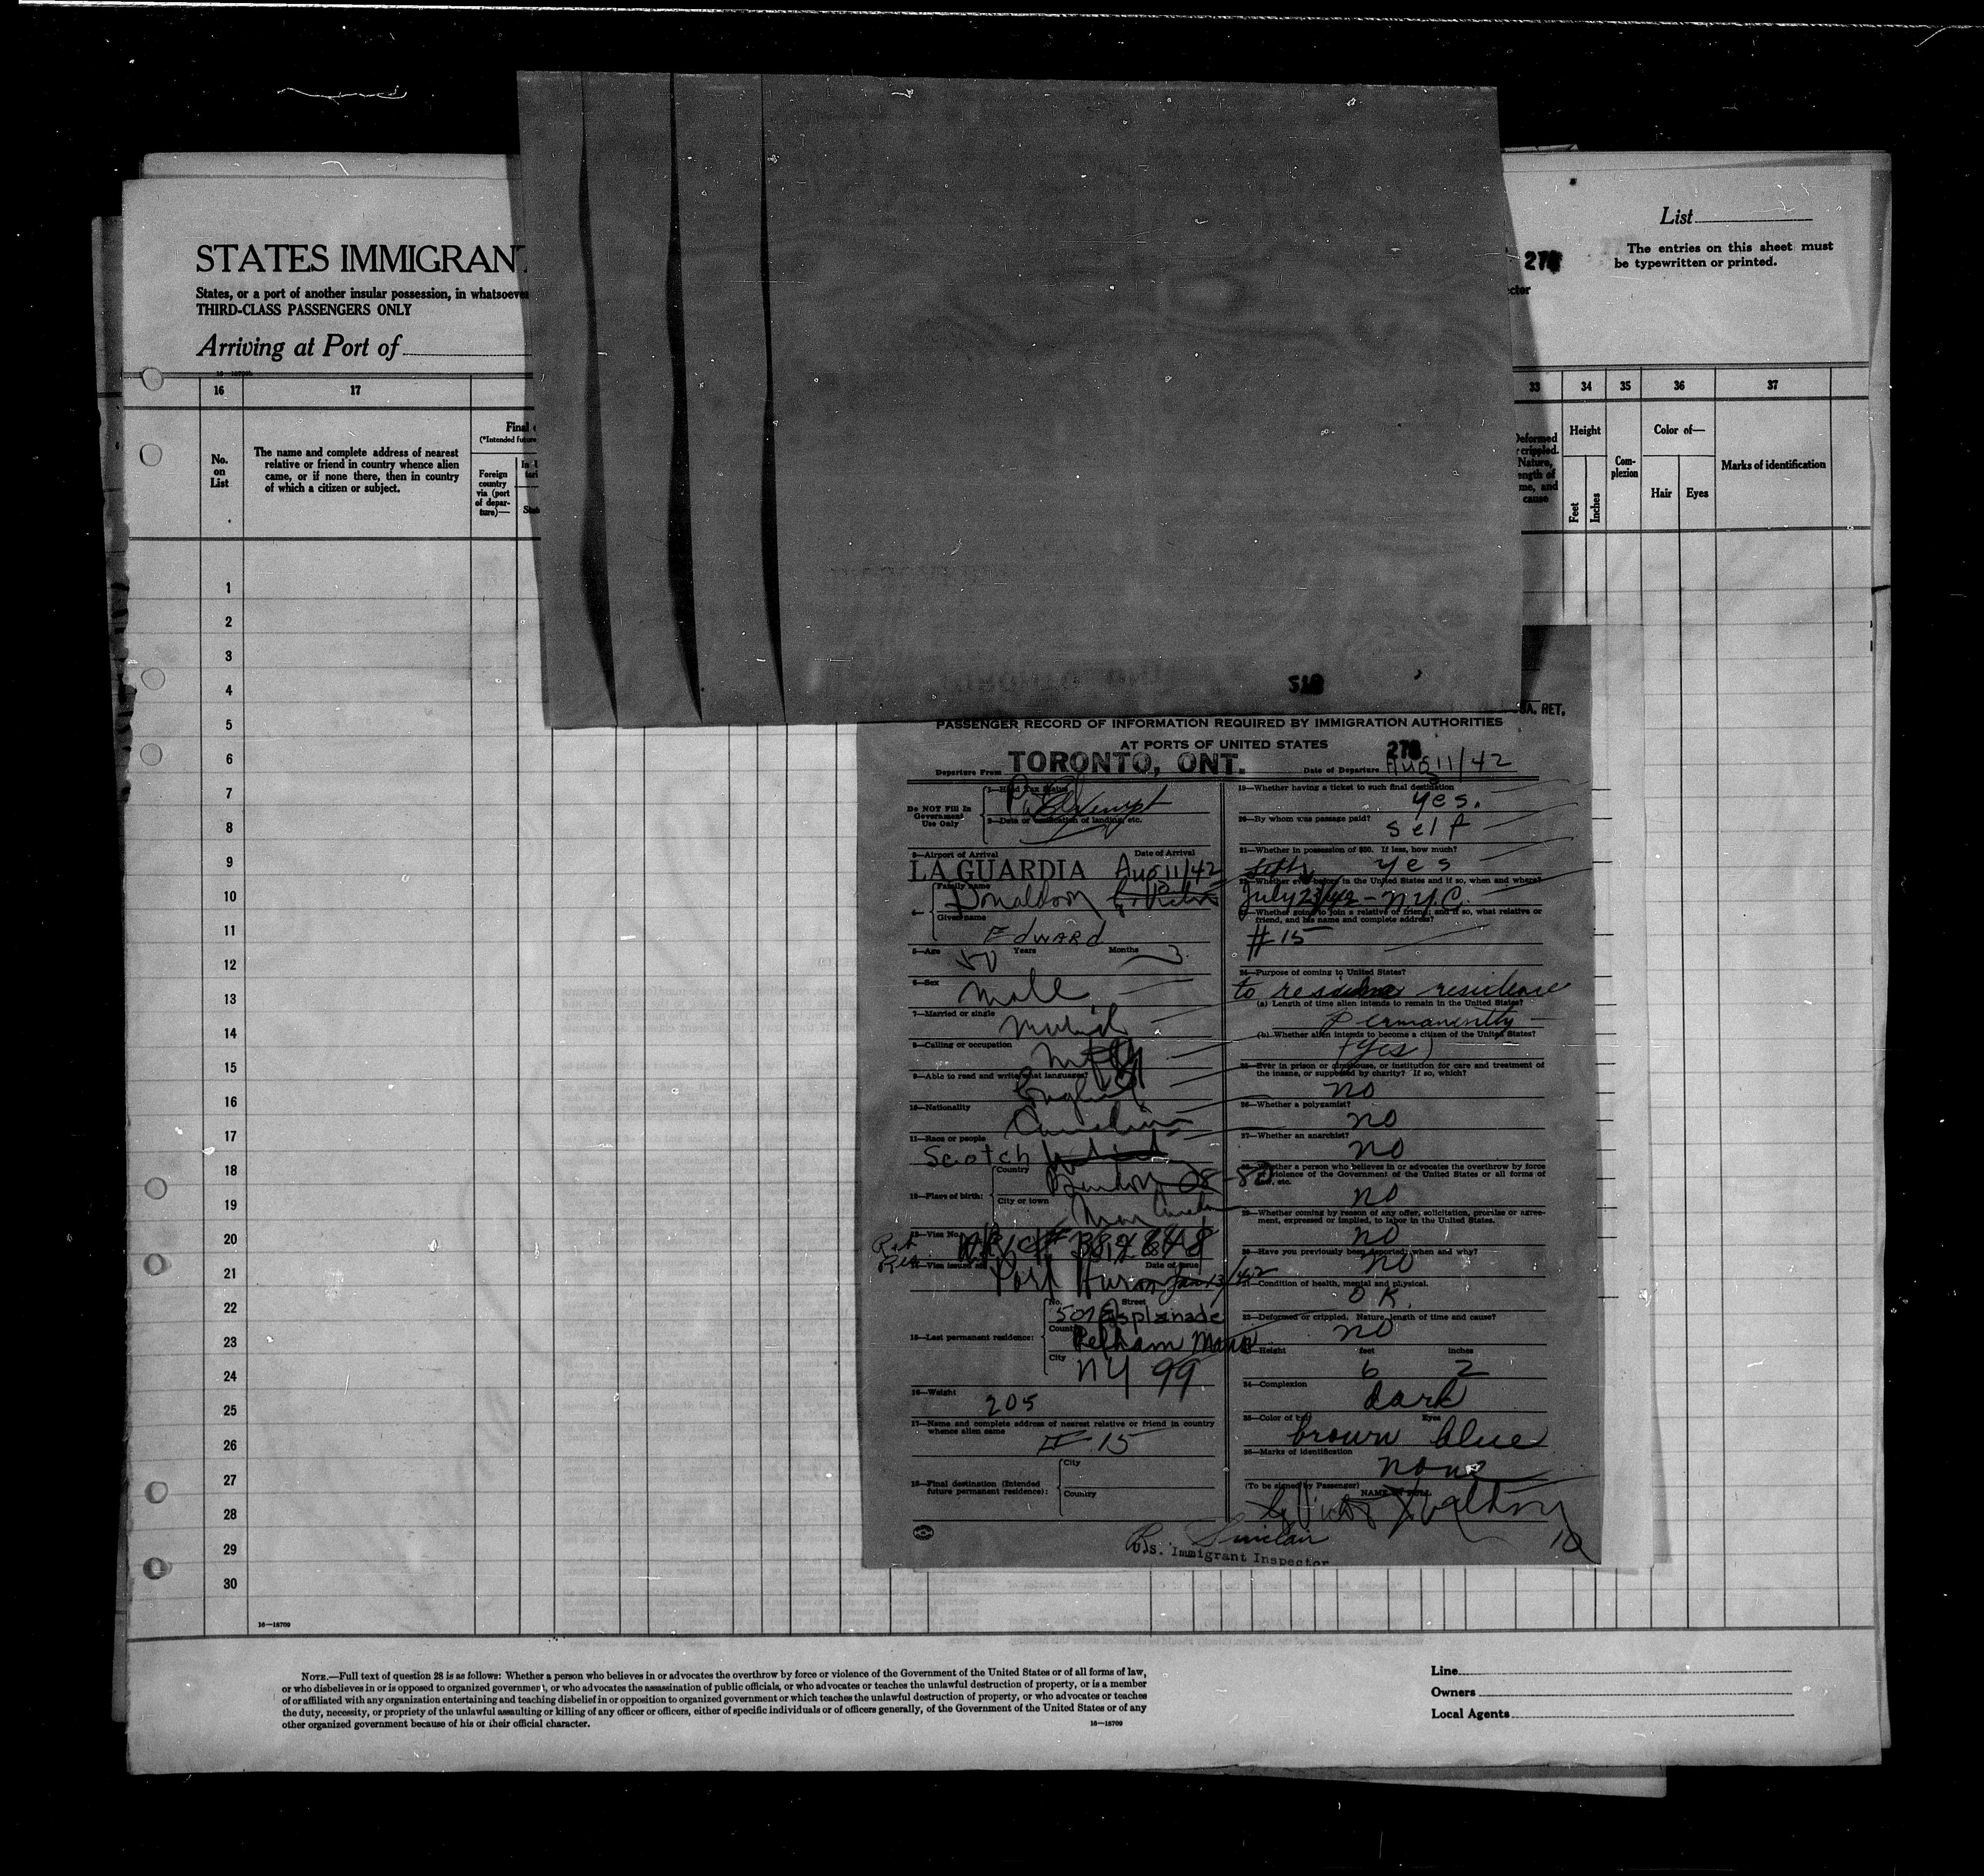 STATES IMMIGRANT
States, or a port of another insular possession, in whatsoever
THIRD-CLASS PASSENGERS ONLY
Arriving at Port of
List
The entries on this sheet must
be typewritten or printed.
16
17
33
34
35
36
37
No.
on
List
The name and complete address of nearest
relative or friend in country whence alien
came, or if none there, then in country
of which a citizen or subject.
Final
(*Intended future
Foreign
country
via (port
of depar-
ture)—
Deformed
crippled.
Nature,
length of
time, and
cause
Height
Feet
Inches
Com-
plexion
Color of—
Hair
Eyes
Marks of identification
1
2
3
4
5
6
7
8
9
10
11
12
13
14
15
16
17
18
19
20
21
22
23
24
25
26
27
28
29
30
16—18709
PASSENGER RECORD OF INFORMATION REQUIRED BY IMMIGRATION AUTHORITIES
AT PORTS OF UNITED STATES
Departure From TORONTO, ONT.
Date of Departure Aug 11/42
Do NOT Fill In
Government
Use Only
1—Head Tax Status
2—Date or verification of landing, etc.
3—Airport of Arrival
Date of Arrival
LA GUARDIA Aug 11/42
Family name
Donaldson
Given name
Edward
5—Age 50 Years Months
6—Sex
Male
7—Married or single
8—Calling or occupation
9—Able to read and write what languages?
English
10—Nationality
Canadian
11—Race or people
Scotch
12—Place of birth:
Country
City or town
13—Visa No.
14—Visa issued at
Date of issue
Port Huron Jan 13/42
15—Last permanent residence:
No. Street
Esplanade
Country
Pelham Manor
City
NY 99
16—Weight
205
17—Name and complete address of nearest relative or friend in country
whence alien came
# 15
18—Final destination (Intended
future permanent residence):
City
Country
19—Whether having a ticket to such final destination
yes.
20—By whom was passage paid?
self
21—Whether in possession of $50. If less, how much?
yes
22—Whether ever before in the United States and if so, when and where?
July 23/42 - N.Y.C.
23—Whether going to join a relative or friend; and if so, what relative or
friend, and his name and complete address?
# 15
24—Purpose of coming to United States?
residence
(a) Length of time alien intends to remain in the United States?
Permanently
(b) Whether alien intends to become a citizen of the United States?
(yes)
25—Ever in prison or almshouse, or institution for care and treatment of
the insane, or supported by charity? If so, which?
no
26—Whether a polygamist?
no
27—Whether an anarchist?
no
28—Whether a person who believes in or advocates the overthrow by force
or violence of the Government of the United States or all forms of
law, etc.
no
29—Whether coming by reason of any offer, solicitation, promise or agree-
ment, expressed or implied, to labor in the United States.
no
30—Have you previously been deported; when and why?
no
31—Condition of health, mental and physical.
OK.
32—Deformed or crippled. Nature, length of time and cause?
no
33—Height feet inches
6 2
34—Complexion
dark
35—Color of hair Eyes
brown blue
36—Marks of identification
none
(To be signed by Passenger)
NAME IN FULL.
Sinclair
U.S. Immigrant Inspector
NOTE.—Full text of question 28 is as follows: Whether a person who believes in or advocates the overthrow by force or violence of the Government of the United States or of all forms of law,
or who disbelieves in or is opposed to organized government, or who advocates the assassination of public officials, or who advocates or teaches the unlawful destruction of property, or is a member
of or affiliated with any organization entertaining and teaching disbelief in or opposition to organized government or which teaches the unlawful destruction of property, or who advocates or teaches
the duty, necessity, or propriety of the unlawful assaulting or killing of any officer or officers, either of specific individuals or of officers generally, of the Government of the United States or of any
other organized government because of his or their official character.
16—18709
Line
Owners
Local Agents